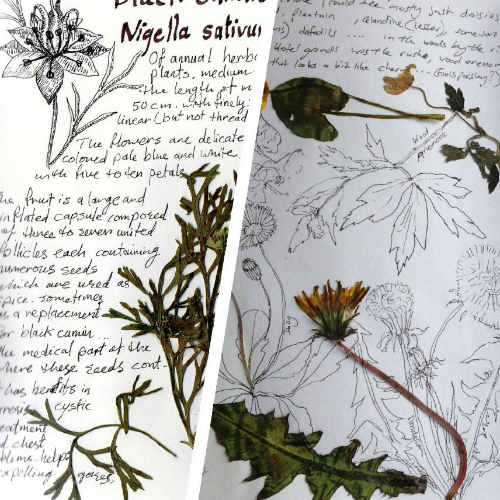 Black Cumin
Nigella sativu
Of annual herb
plants, medium
the length of
50 cm. with finely
linear (but not thread
The flowers are delicate
coloured pale blue and white
with five to ten petals
he fruit is a large and
inflated capsule composed
of three to seven united
follicles each containing
numerous seeds
which are used as
spice. sometimes
as a replacement
or black cumin
the medical part of the
where these seeds cont-
has benefits in
cystic
eatment
d chest
blems. helps
expelling gases,
could see mostly just daisies
plantain, celandine (lesser), some sort
daffodils .... in the woods by the
Hotel grounds was the
that looks a bit like
Wood
Anemone
Daisy